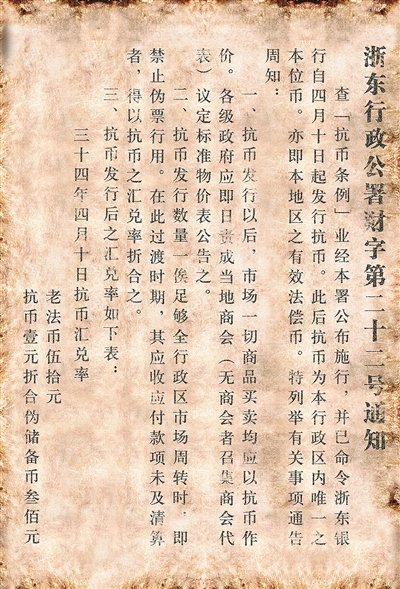 浙东行政公署财字第二十二号通知
查「抗币条例」业经本署公布施行，并已命令浙东银
行自四月十日起发行抗币。此后抗币为本行政区内唯一之
本位币。亦即本地区之有效法偿币。特列举有关事项通告
周知：
一、抗币发行以后，市场一切商品买卖均应以抗币作
价。各级政府应即日责成当地商会（无商会者召集商会代
表）议定标准物价表公告之。
二、抗币发行数量一俟足够全行政区市场周转时，即
禁止伪票行用。在此过渡时期，其应收应付款项未及清算
者，得以抗币之汇兑率折合之。
三、抗币发行后之汇兑率如下表：
三十四年四月十日抗币汇兑率
老法币伍拾元
抗币壹元折合伪储备币叁佰元